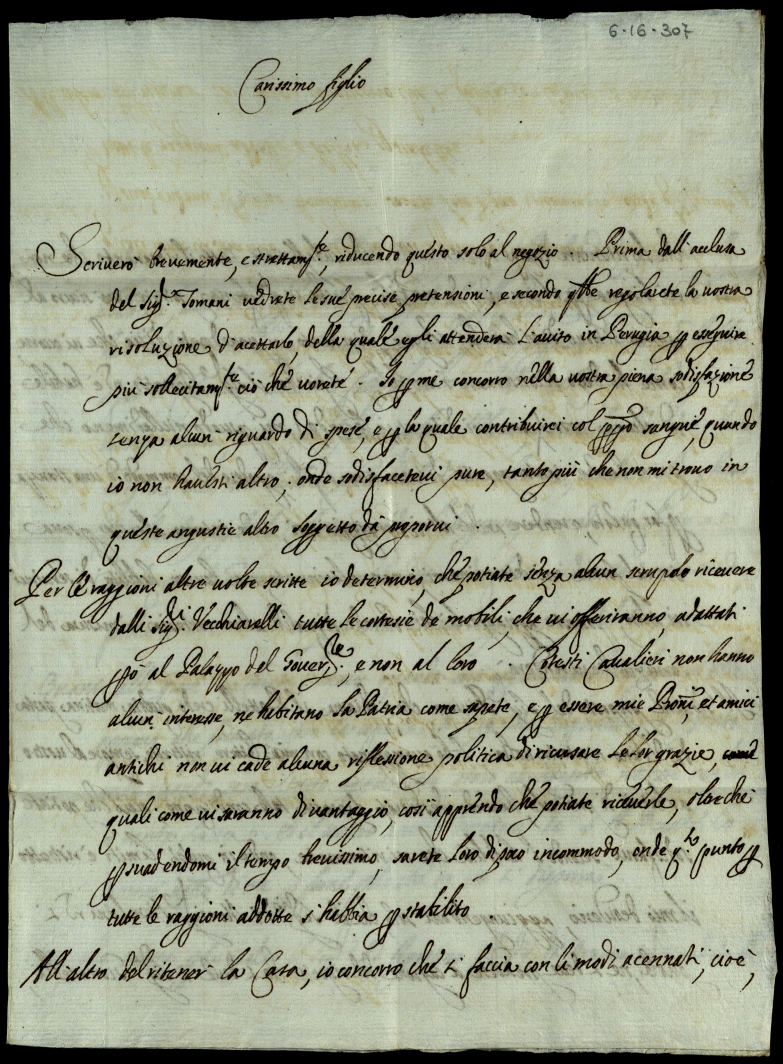 6-16-307
Carissimo figlio
Scriverò brevemente, e strettamte, riducendo questo solo al negozio. Prima dall'acclusa
del Sigr Tomani vedrete le sue precise pretensioni, e secondo qlle regolarete la vostra
risoluzione d'acettarlo, della quale egli attenderà l'aviso in Perugia p esseguire
più sollecitamte ciò che vorete. Io p me concorro nella vostra piena sodisfazione
senza alcun riguardo di spese, e p la quale contribuirei col pprio sangue, quando
io non havesti altro, onde sodisfacetevi pure, tanto più che non mi trovo in
queste angustie altro soggetto da pnporvi.
Per le raggioni altre volte scritte io determino, che potiate senza alcun scrupolo ricevere
dalli Sigri Vecchiarelli tutte le cortesie de mobili, che vi offeriranno, adattati
pò al Palazzo del Goverre, e non al loro. Cotesti Cavalieri non hanno
alcun interesse, ne habitano la Patria come sapete, e p essere mie Proni, et amici
antichi non vi cade alcuna riflessione politica di ricusare le lor grazie,
quali come vi saranno di vantaggio, così apprendo che potiate riceverle, oltre che
psuadendomi il tempo brevissimo, sarete loro di poco incommodo, onde qto punto p
tutte le raggioni addotte si habbia p stabilito
All'altro del ritener la Casa, io concorro che si faccia con li modi acennati, cioè,